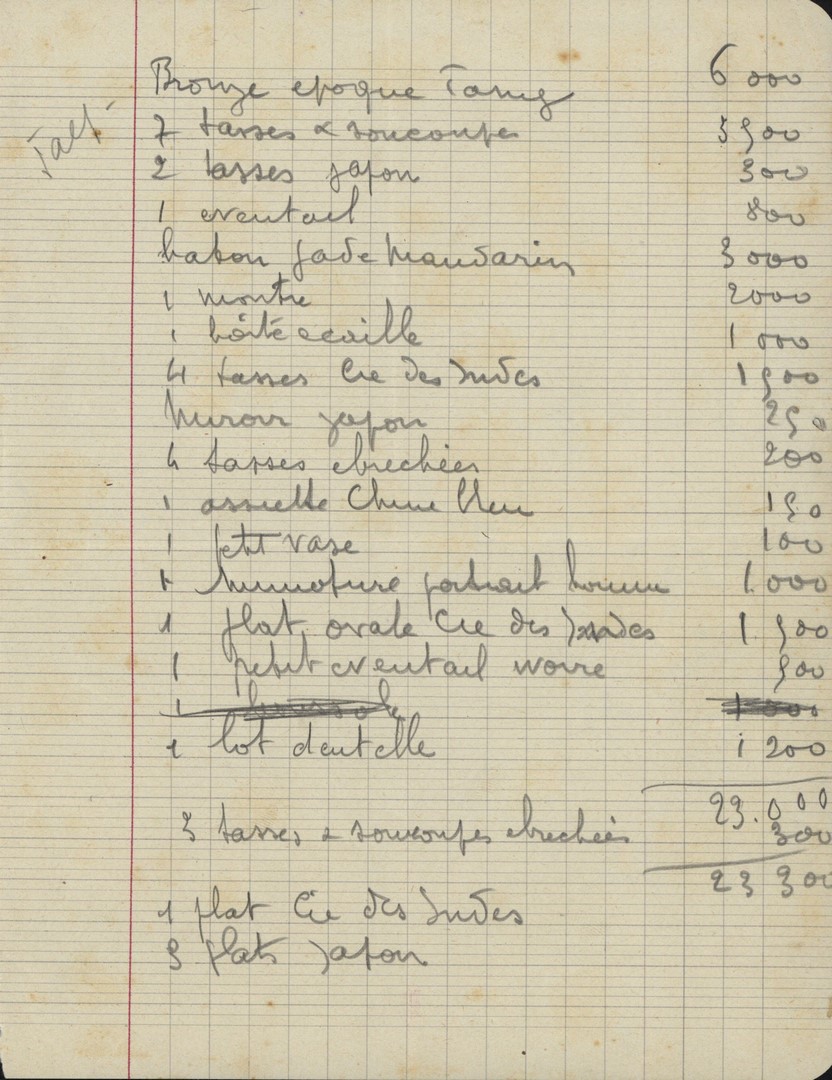 Bronze epoque Tang 6 000
7 tasses & soucoupes 3500
2 tasses japon 300
1 eventail 800
baton jade Mandarin 3000
1 montre 2000
1 boîte ecaille 1 000
4 tasses Cie des Indes 1500
Miroir japon 250
4 tasses ebrechées 200
1 assiette Chine bleu 150
1 petit vase 100
1 miniature portrait homme 1.000
1 plat ovale Cie des Indes 1 500
1 petit eventail ivoire 500
1 boussole 1 000
1 lot dentelle 1 200
23.000
3 tasses & soucoupes ebrechées 300
23 300
1 plat Cie des Indes
3 plats Japon